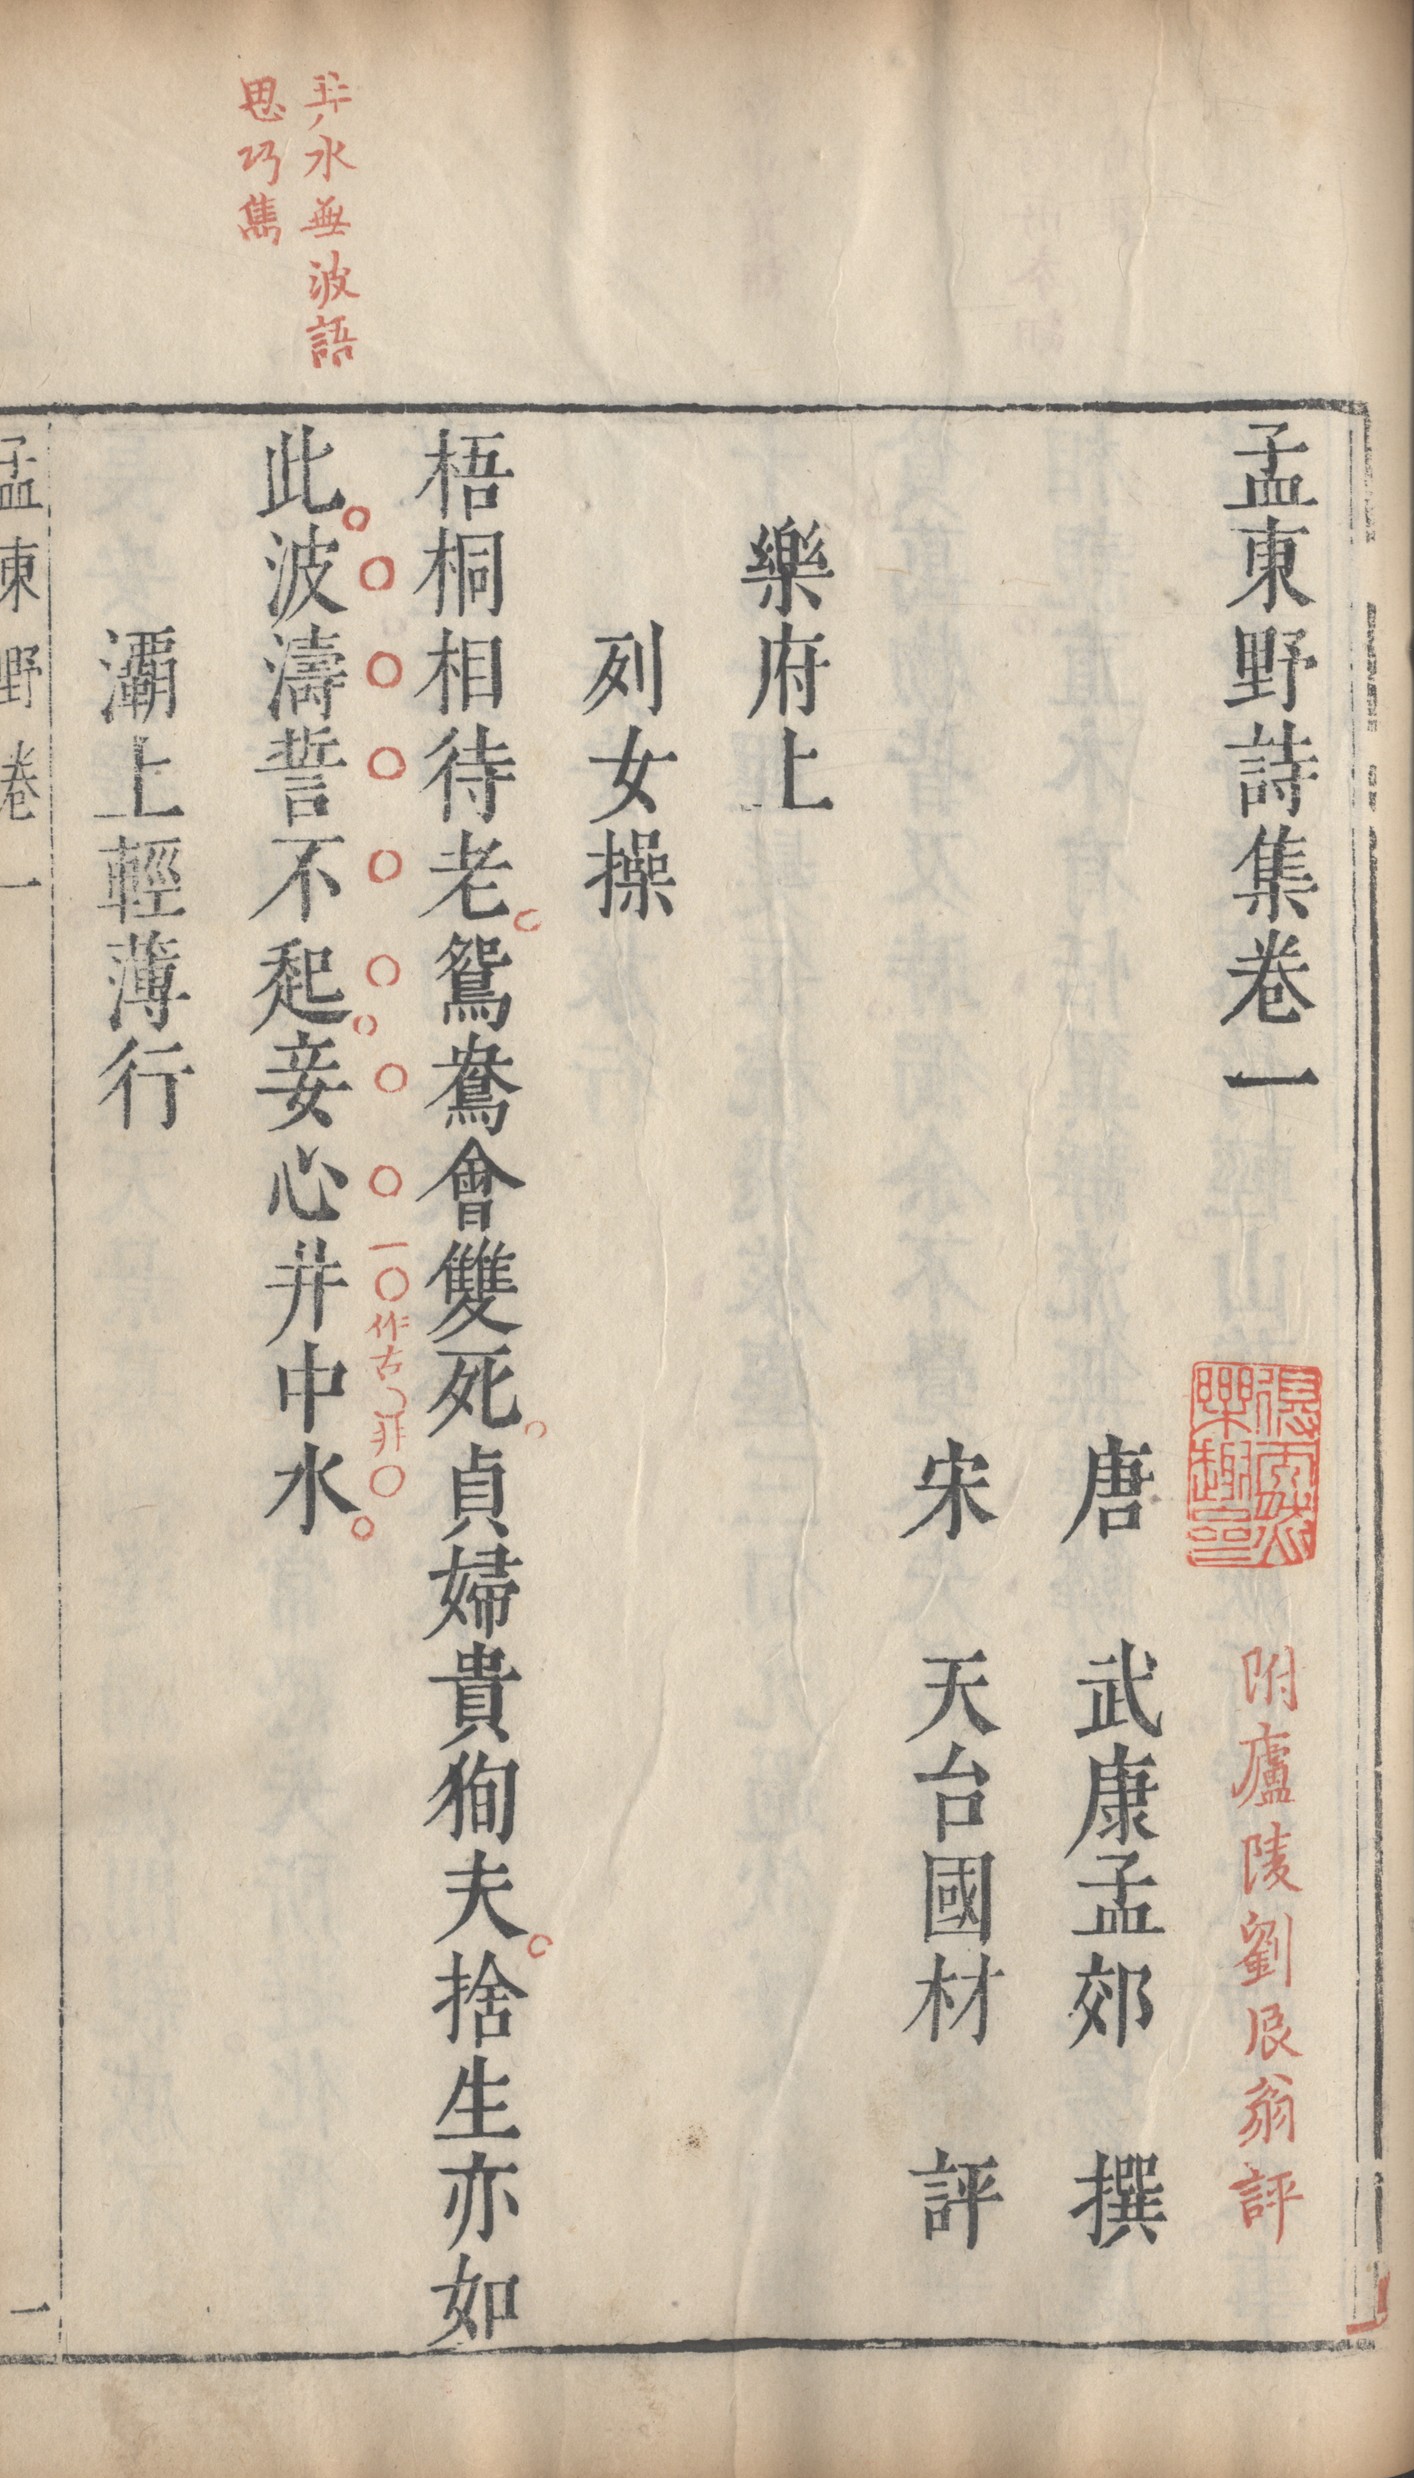 孟東野詩集卷一
附廬陵劉辰翁評
唐　武康孟郊　撰
宋　天台國材　評
樂府上
列女操
梧桐相待老鴛鴦會雙死貞婦貴狥夫捨生亦如
此波濤誓不起妾心井中水
一作古非
井水無波語
思巧雋
灞上輕薄行
孟東野卷一
一